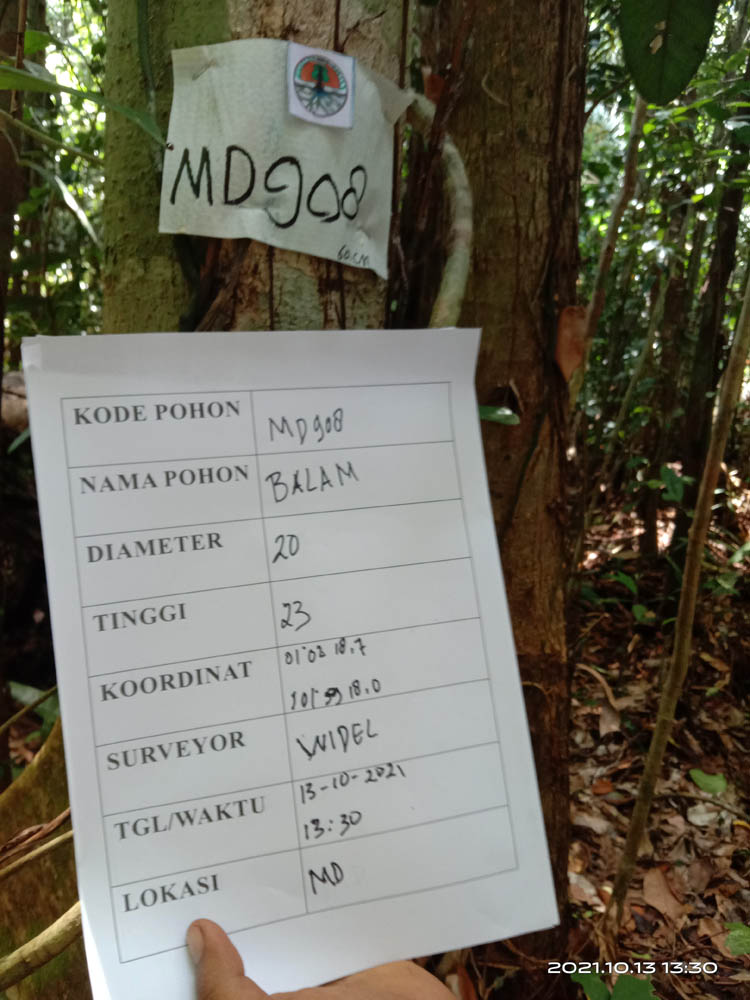 MD908
60 cm
KODE POHON MD908
NAMA POHON BALAM
DIAMETER 20
TINGGI 23
KOORDINAT 01°03 18.7
101°59 18.0
SURVEYOR WIDEL
TGL/WAKTU 13-10-2021
13:30
LOKASI MD
2021.10.13 13:30